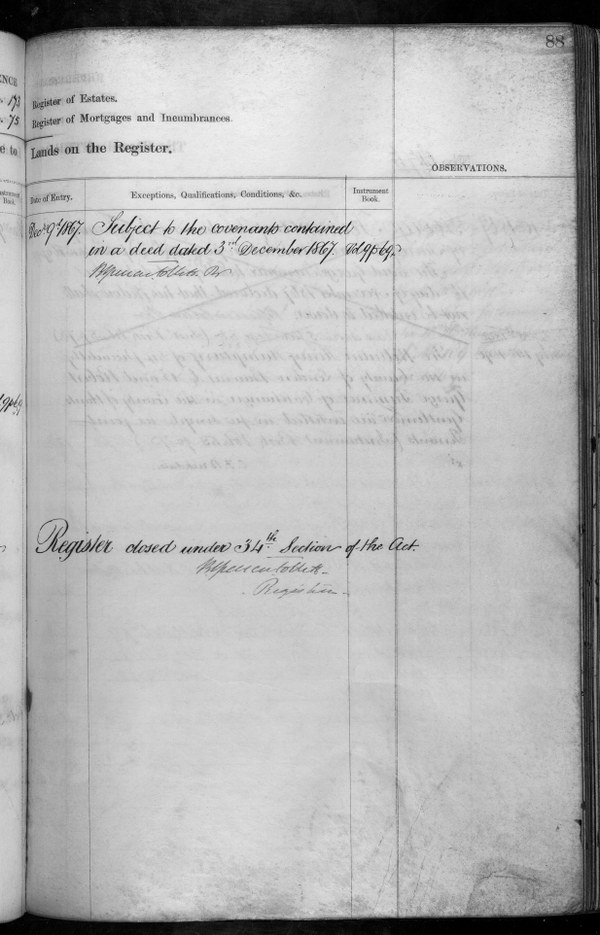 88
ENCE
173
75
e to
Instrument
Book.
Register of Estates.
Register of Mortgages and Incumbrances.
Lands on the Register.
OBSERVATIONS.
Date of Entry.
Exceptions, Qualifications, Conditions, &c.
Instrument
Book.
Decr 9th 1867. Subject to the covenants contained
in a deed dated 3rd December 1867. Vol 9 p 69.
Register closed under 34th Section of the Act.
Registrar